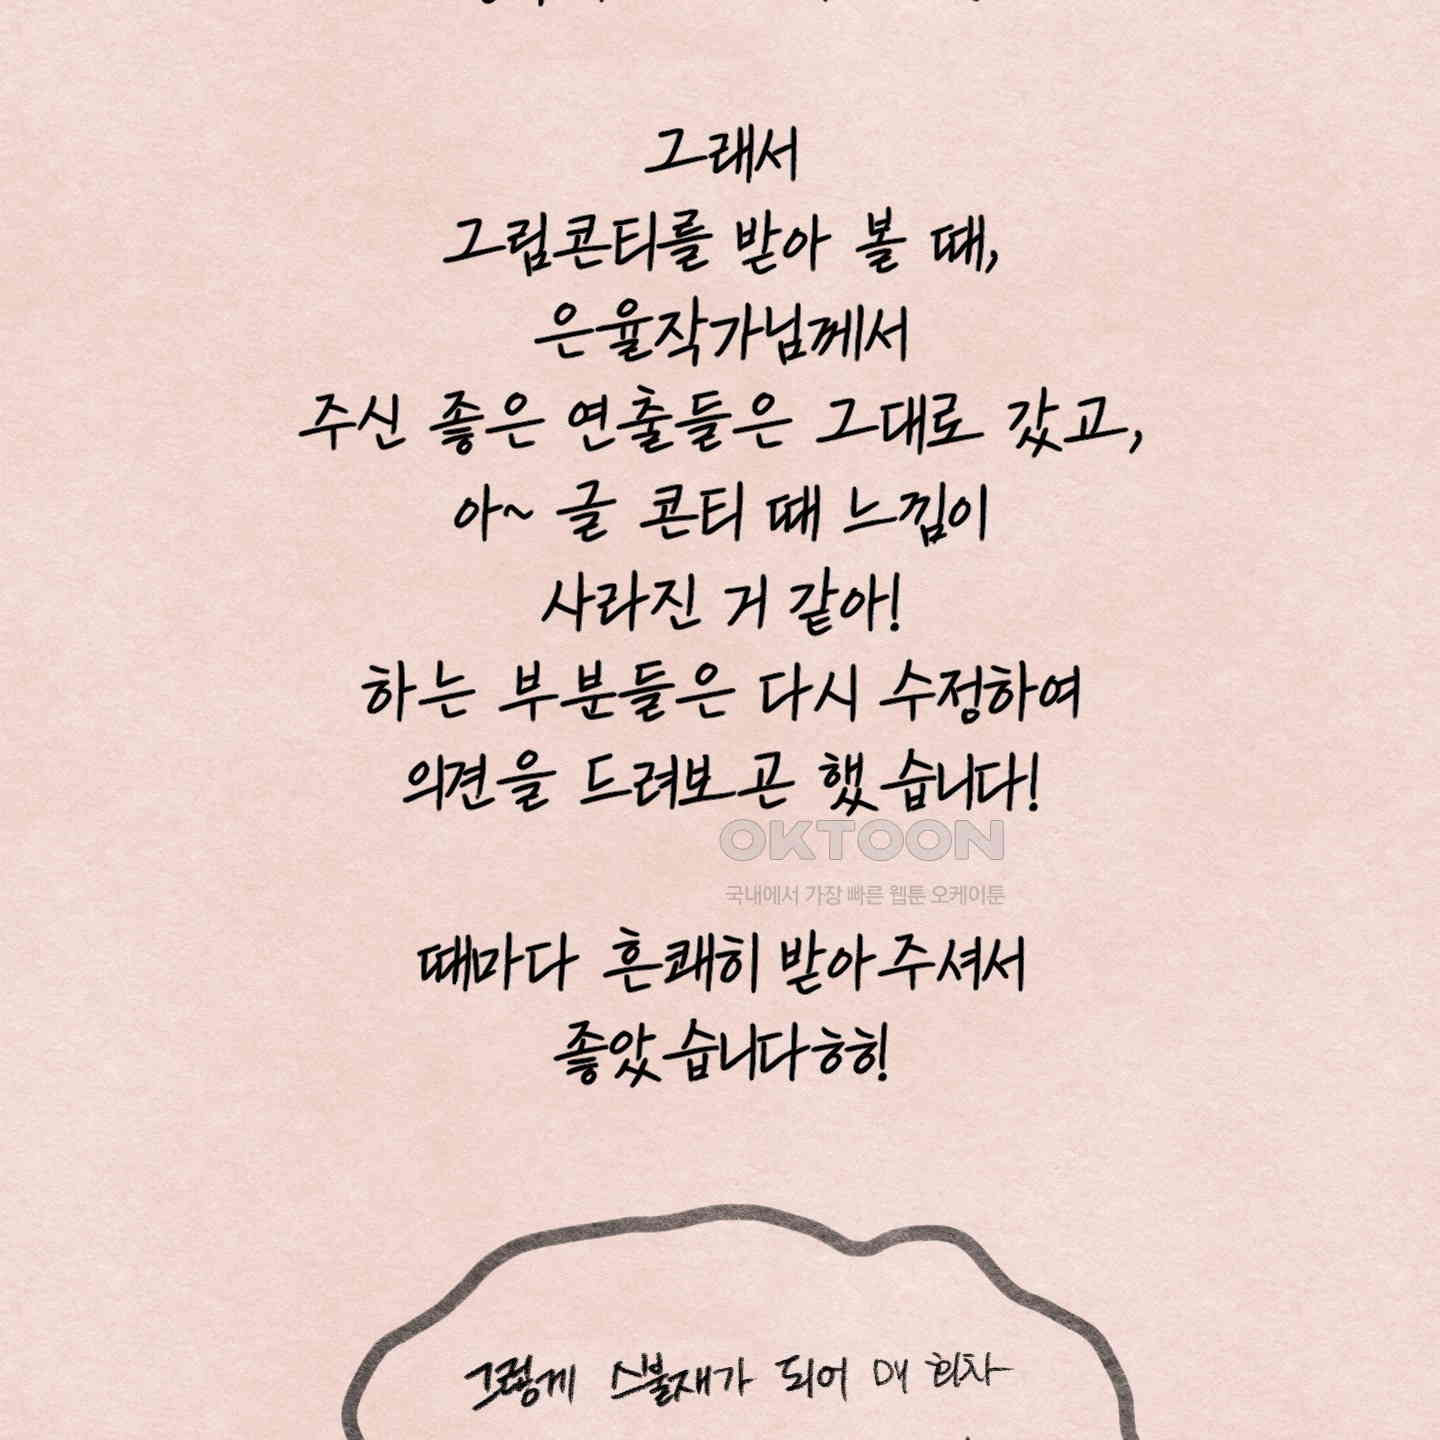 그래서
그림콘티를 받아 볼 때,
은율작가님께서
주신 좋은 연출들은 그대로 갔고,
아~ 글 콘티 때 느낌이
사라진 거 같아!
하는 부분들은 다시 수정하여
의견을 드려보곤 했습니다!
OKTOON
국내에서 가장 빠른 웹툰 오케이툰
때마다 흔쾌히 받아주셔서
좋았습니다ㅎㅎ!
그렇게 스불재가 되어 매 회차